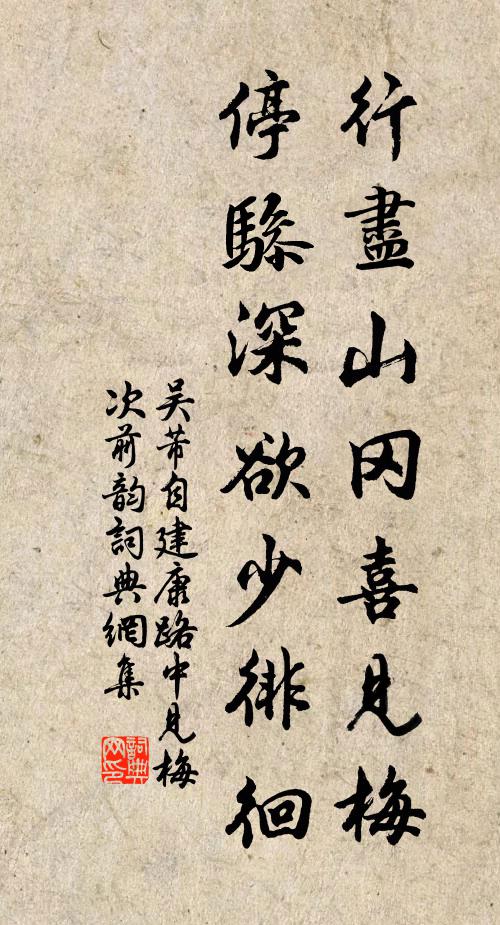 行盡山冈喜見梅
停驂深欲少徘徊
吴芾自建康路中見梅
次前韵詞典網集
詞典
网印